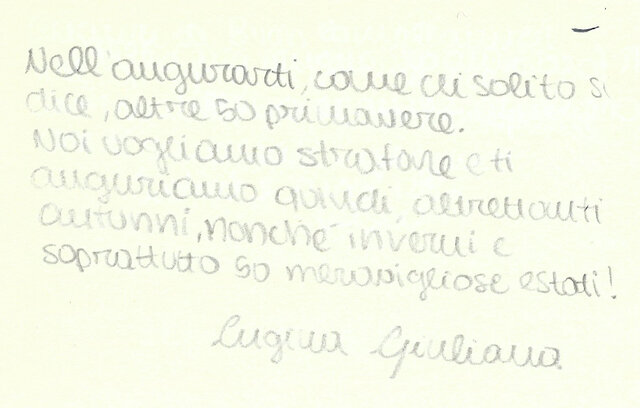 Nell'augurarti, come di solito si
dice, altre 50 primavere.
Noi vogliamo strafare e ti
auguriamo quindi, altrettanti
autunni, nonché inverni e
soprattutto 50 meravigliose estati!
Eugenia Giuliana